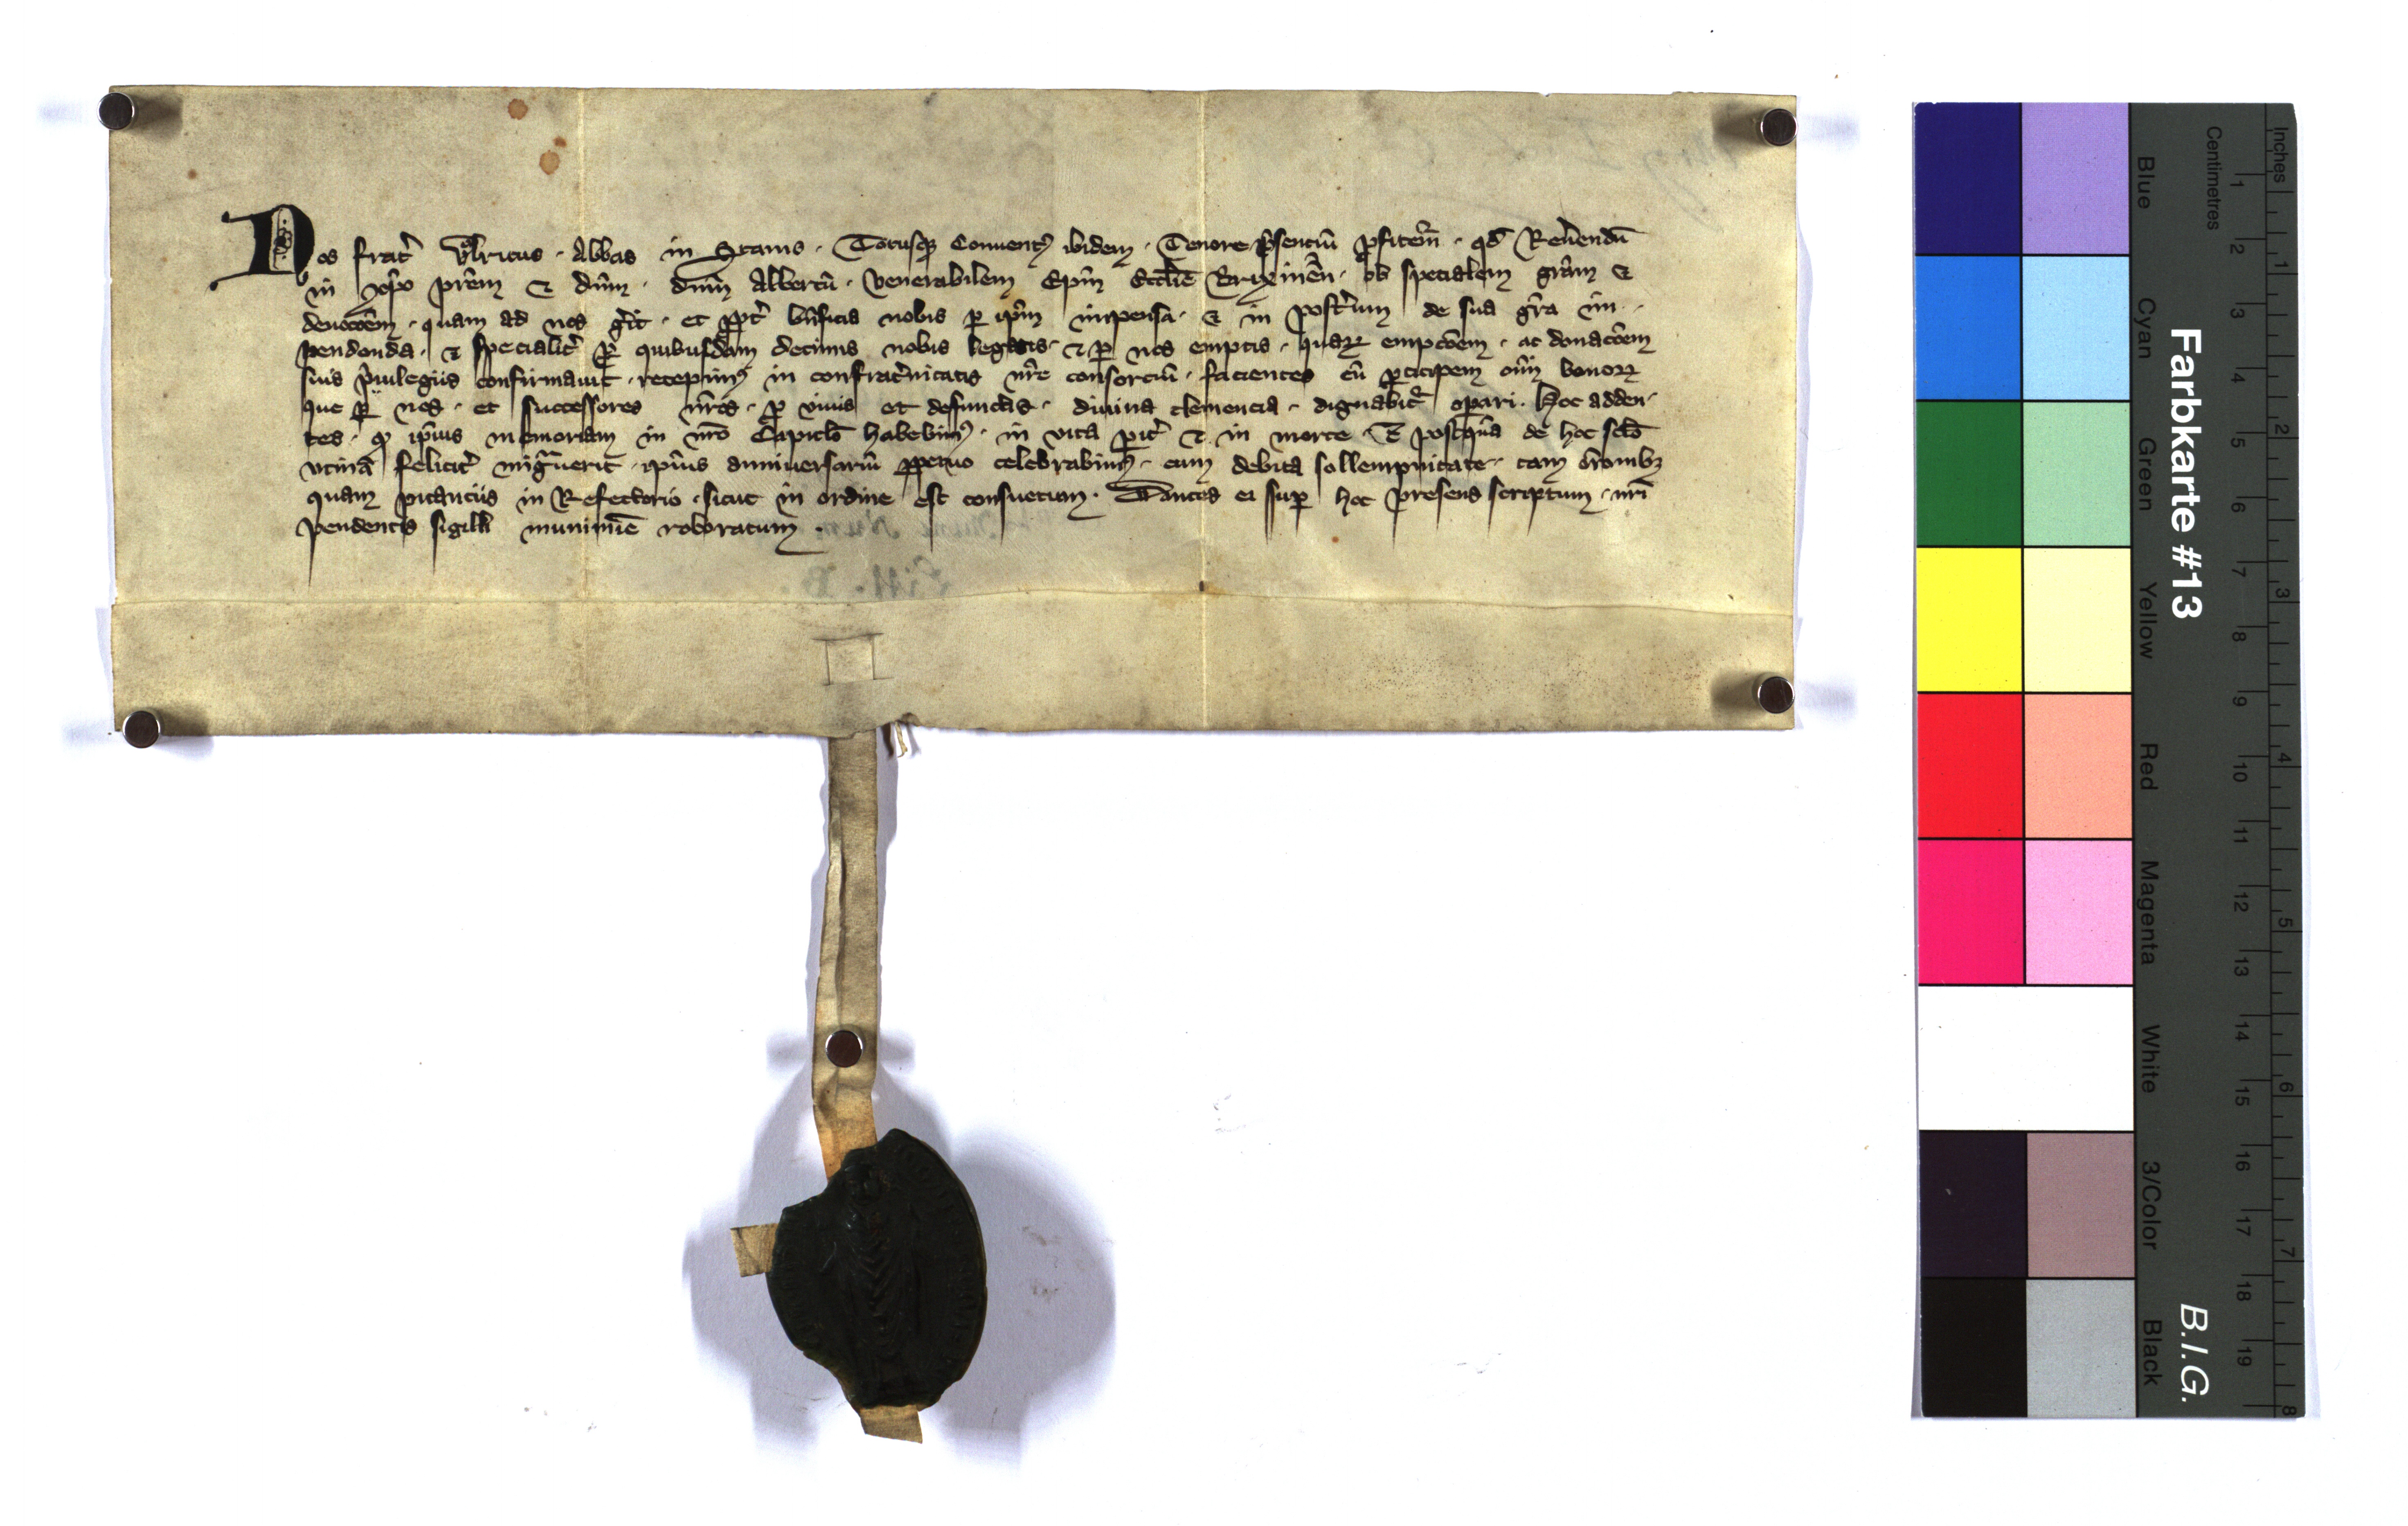 Nos frat̉ Vͦlricus · Abbas in Stams · Totusq̜ Conuentꝰ ibidem · Tenore p̉senciū ꝓfitem̄ · qd̄ Reu̓endū
in xp̄o pr̄em et dn̄m · dn̄m Albertū · venerabilem Ep̄m Eccl̄ie Brixinen̄ · ob specialem gr̄am et
deuoc̄oem · quam ad nos ger̓it · et ꝓpt̉ bn̄ficia nobis ꝑ ip̄m impensa · et in post̉um de sua gr̄a im ·
pendenda · et specialit̉ ꝑ quibusdam decimis nobis legatis · et ꝑ nos emptis · quaꝝ empc̄oem · ac donac̄oem
suis p̉uilegiis confirmauit · recepimꝰ in confrat̉nitatis nr̄e consorciū · facientes eū ꝑticipem om̄i bonoꝝ
que ꝑ nos · et successores nr̄os · ꝓ viuis et defunctis · diuina clemencia · dignabit̉ oꝑari · Hoc adden ·
tes · ꝙ ip̄ius memoriam in nr̄o Capitl̄o habebimꝰ · in vita ꝑit̉ et in morte · Et postq̄ua de hoc sc̄lo
vtinā felicit̉ migᵃuerit · ip̄ius anniuersariū ꝑpetuo celebrabimꝰ · cum debita sollempnitate · tam or̄onibꝫ
quam pitanciis in Refectorio · sicut in ordine est consuetum · Dantes ei suꝑ hoc presens scriptum · nr̄i
pendentis sigilli munimīe roboratum ·
Farbkarte #13
B.I.G.
Inches
1 2 3 4 5 6 7 8
Centimetres
1 2 3 4 5 6 7 8 9 10 11 12 13 14 15 16 17 18 19
Blue
Cyan
Green
Yellow
Red
Magenta
White
3/Color
Black